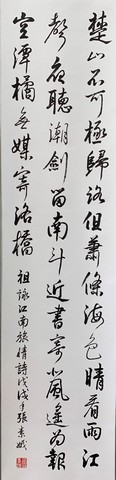 楚山不可極歸路但蕭條海色晴看雨江
聲夜聽潮劍留南斗近書寄北風遙為報
空潭橘無媒寄洛橋 祖詠江南旅情詩戊戌張